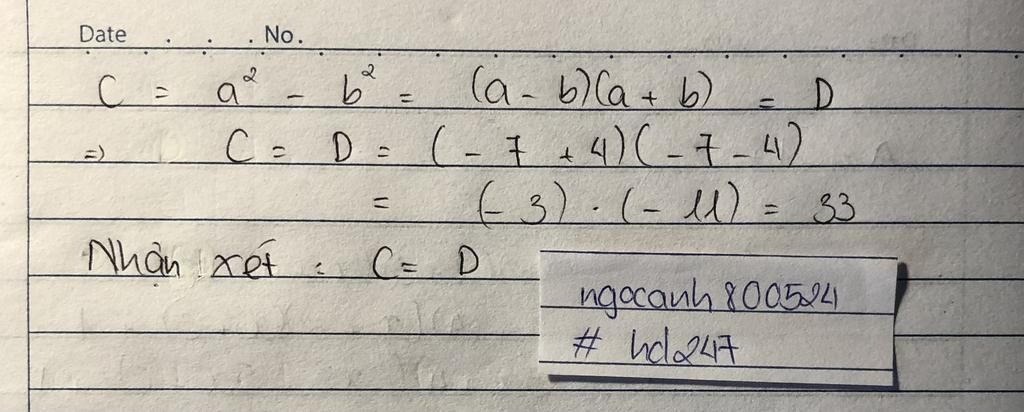 Date . . . . No.
C = a² - b² = (a - b)(a + b) = D
=) C = D = (-7 + 4)(-7 - 4)
= (-3) . (-11) = 33
Nhận xét : C = D
ngocanh800524
# hd247